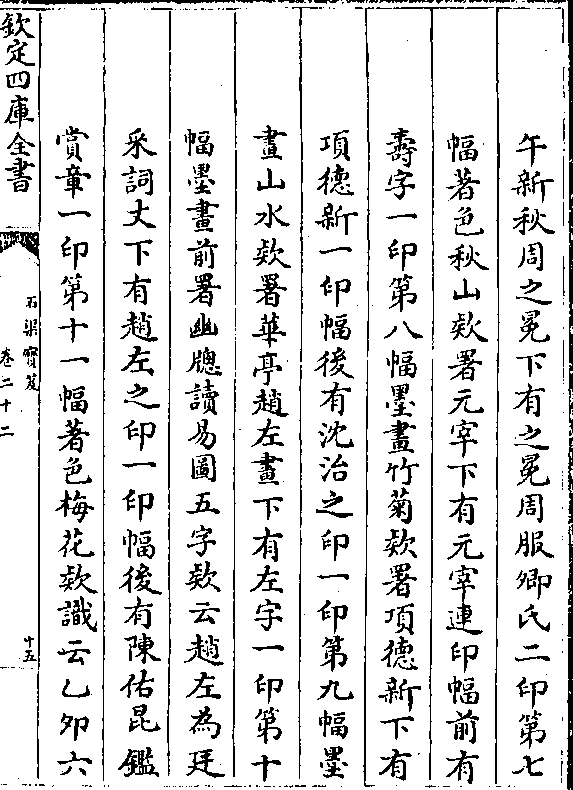 午新秋周之冕下有之冕周服卿氏二印第七
幅著色秋山欵署元宰下有元宰連印幅前有
壽字一印第八幅墨畫竹菊欵署項德新下有
項德新一印幅後有沈治之印一印第九幅墨
畫山水欵署華亭趙左畫下有左字一印第十
幅墨畫前署幽牕讀易圖五字欵云趙左為廷
采詞丈下有趙左之印一印幅後有陳佑昆鑑
賞章一印第十一幅著色梅花欵識云乙夘六
欽定四庫全書
石渠寳笈
卷二十二
十五